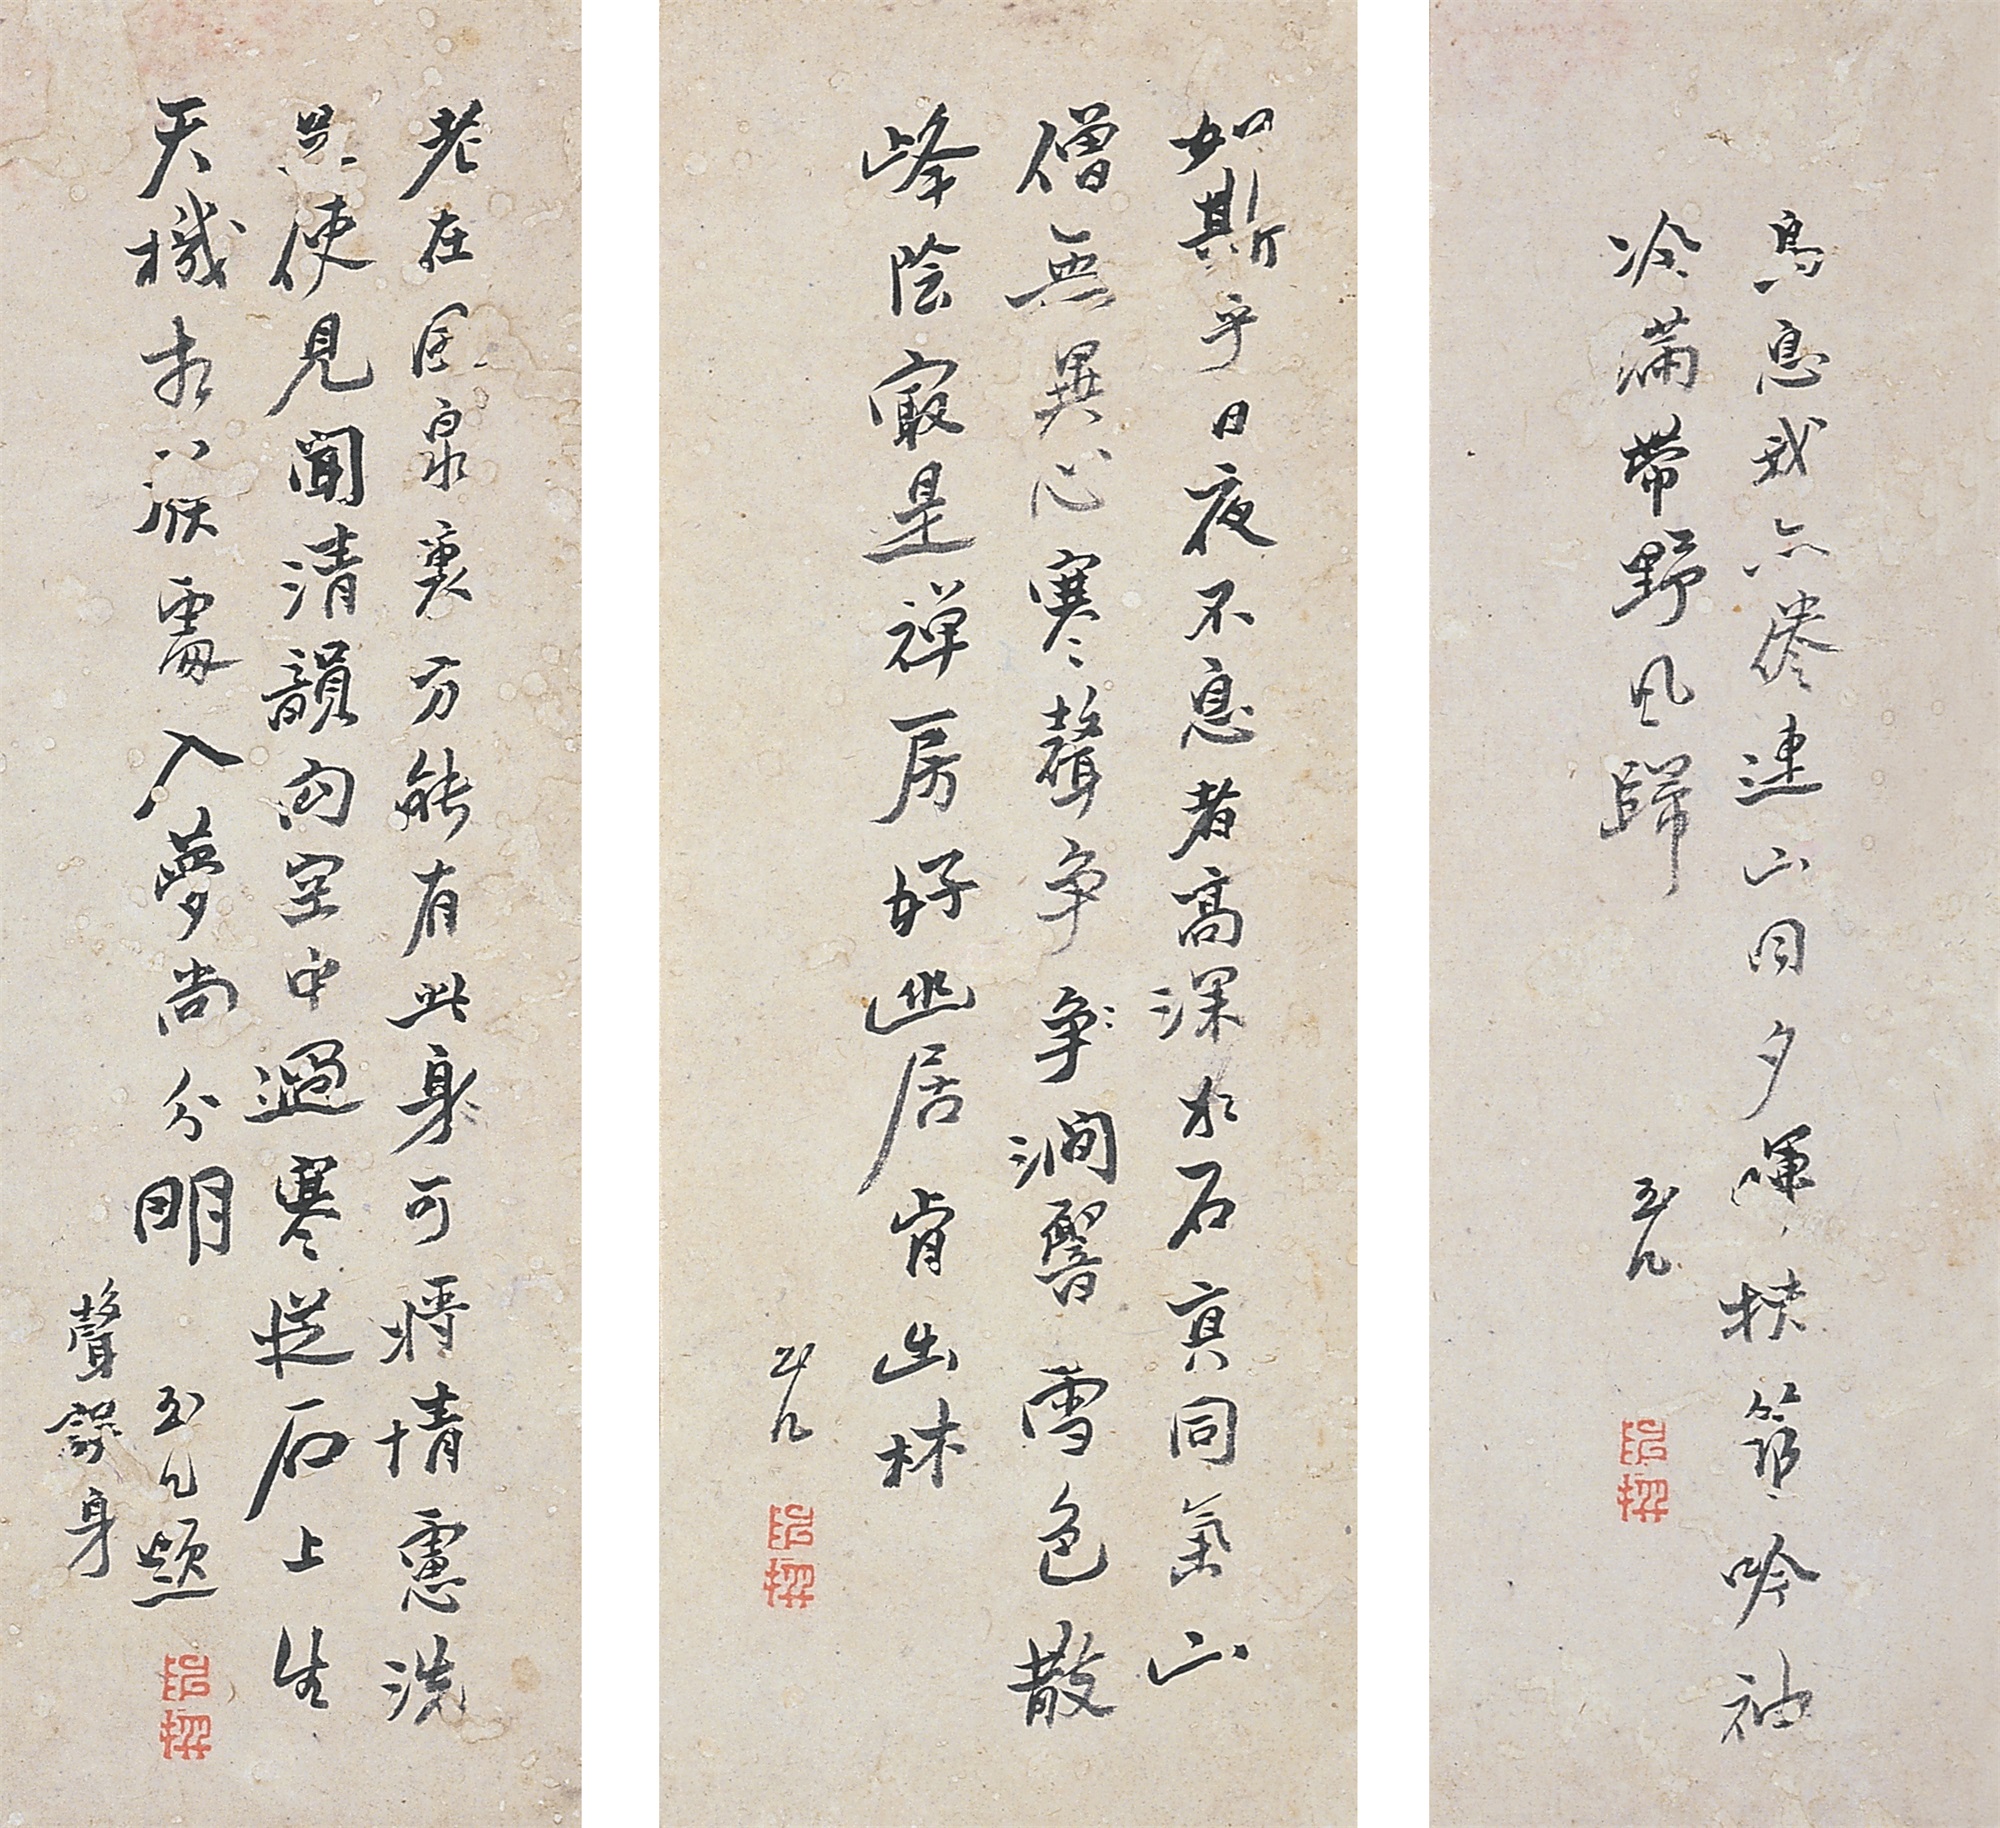 鳥息我亦倦連山同夕暉扶筇吟袖
冷滿帶野風歸
玉几
如斯乎日夜不息者高深水石真同氣山
僧無異心寒聲爭爭澗響雪色散
峰陰最是禪房好幽居肯出林
玉几
老在風泉裏方能有此身可將情慮洗
只使見聞清韻向空中過寒從石上生
天機處入夢尚分明
玉几題
聲誤身